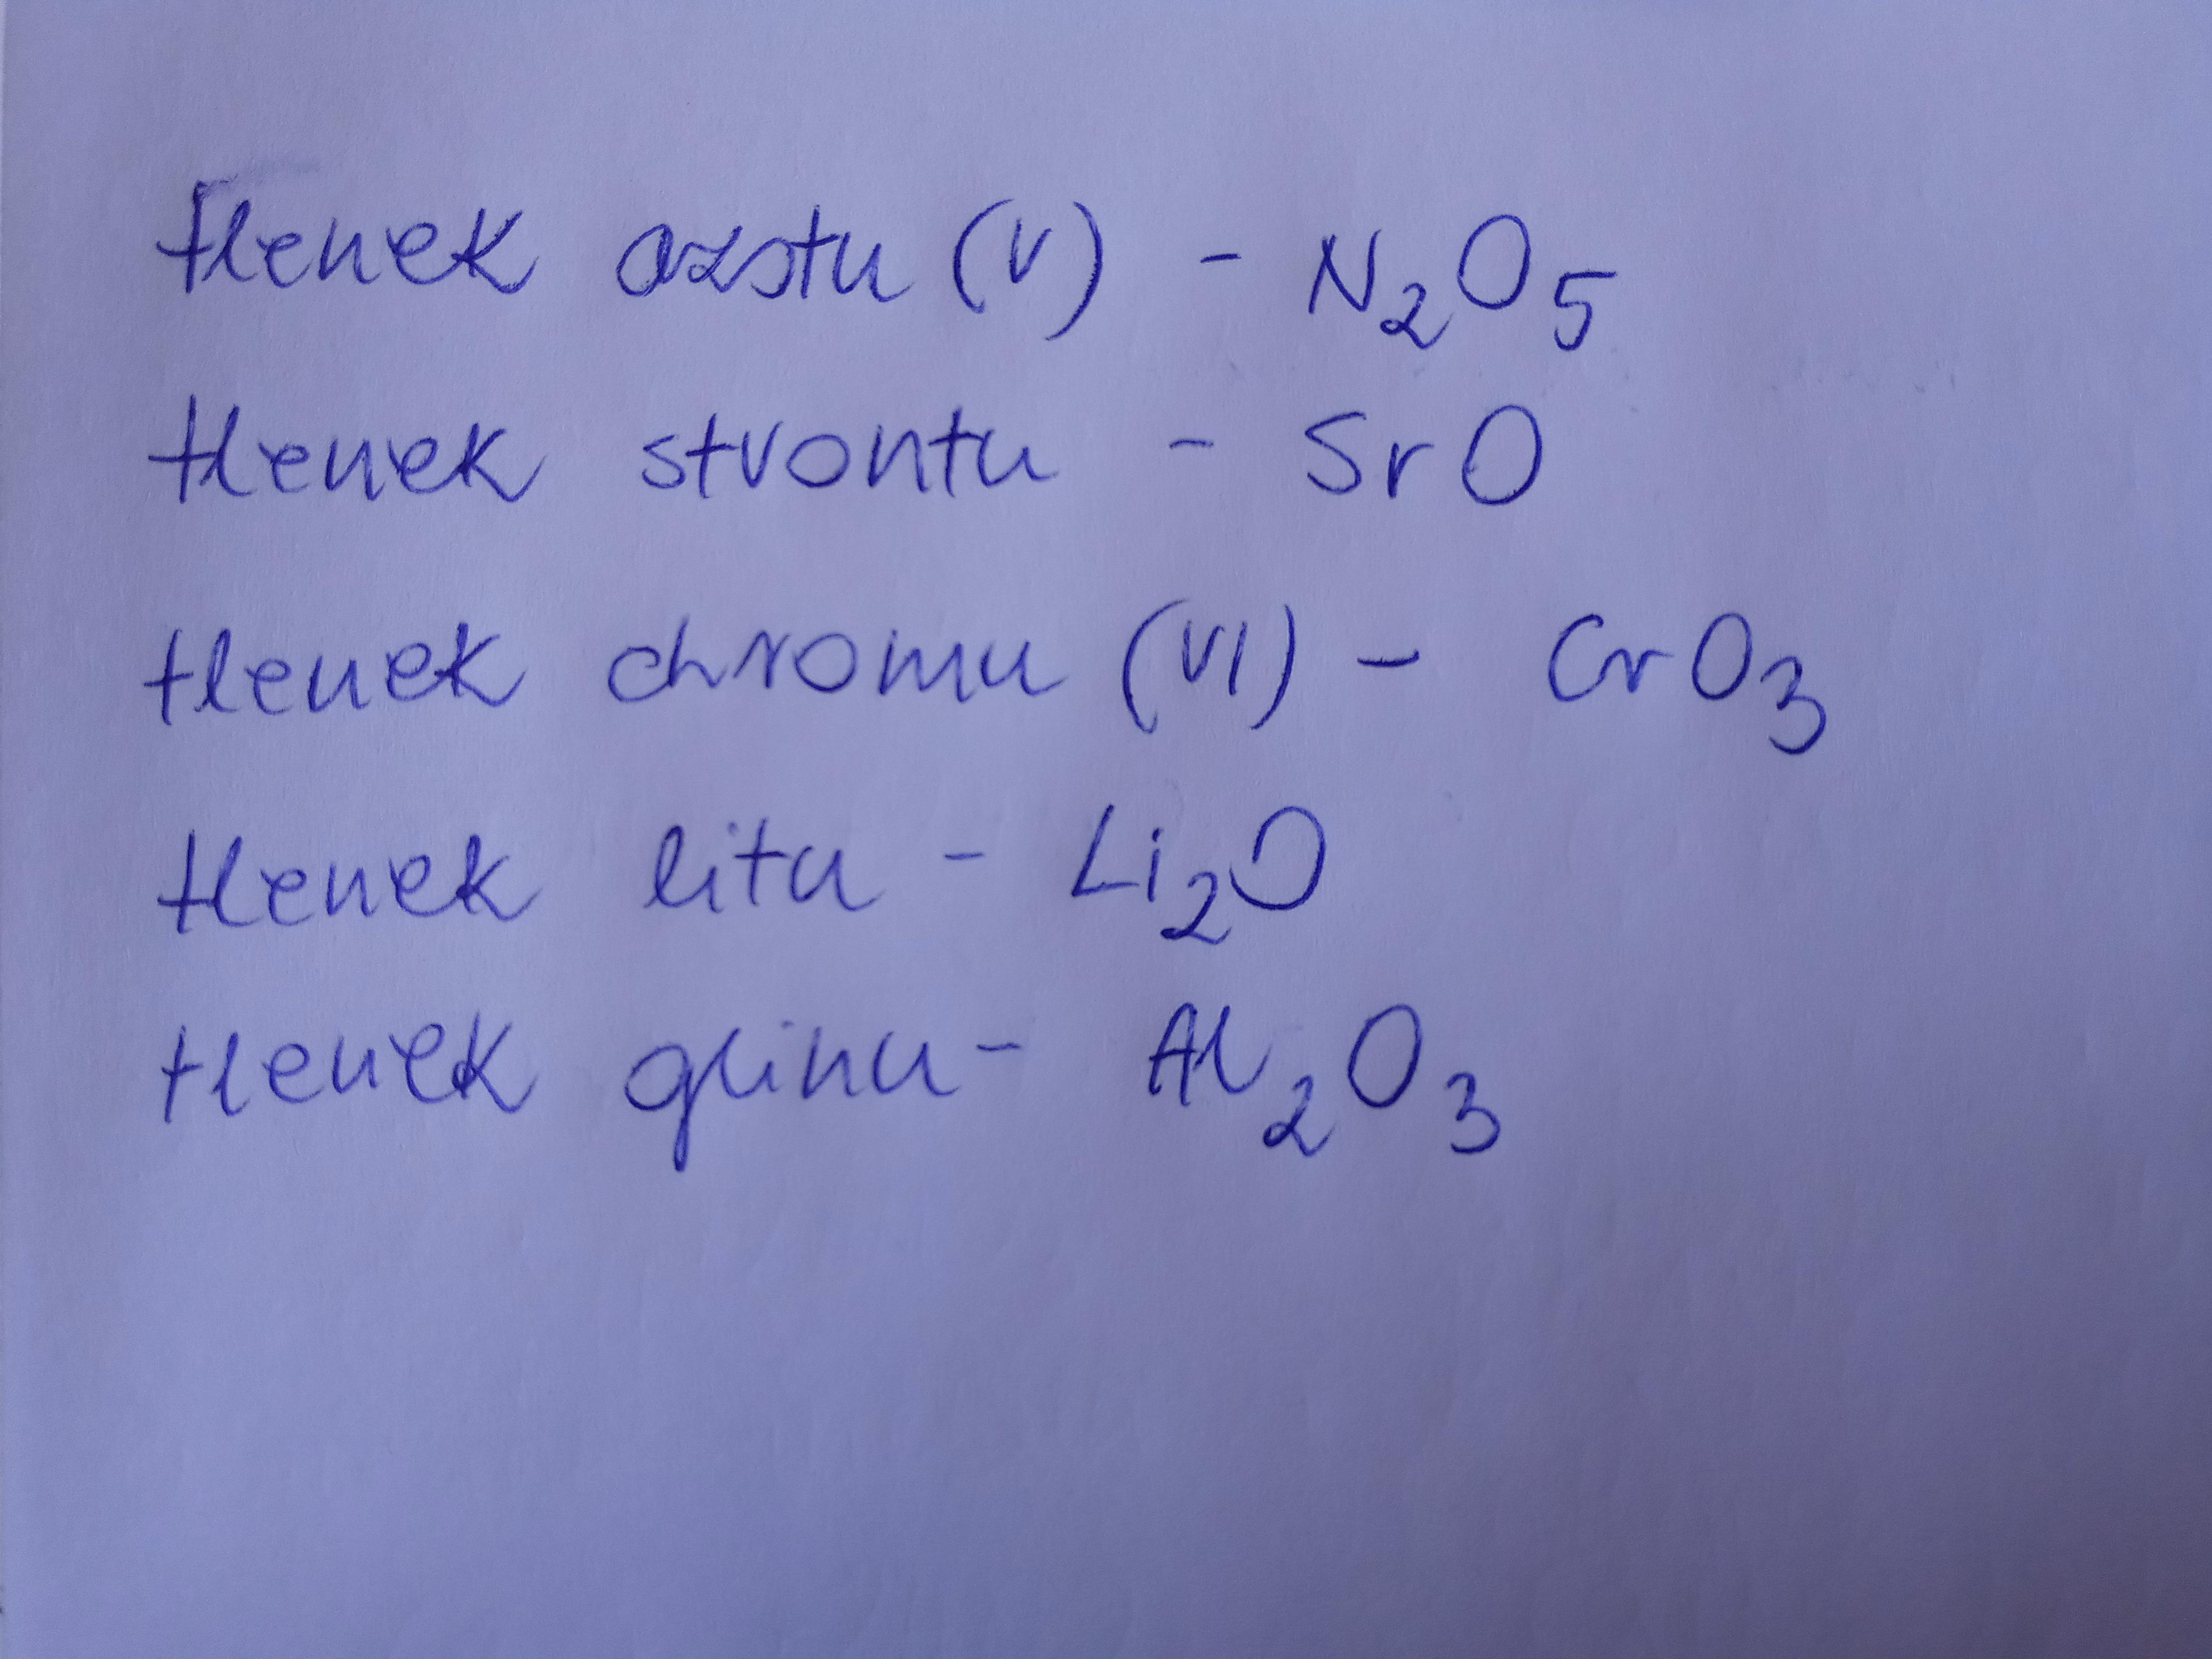 tlenek azotu (V) - N₂O₅
tlenek strontu - SrO
tlenek chromu (VI) - CrO₃
tlenek litu - Li₂O
tlenek glinu - Al₂O₃